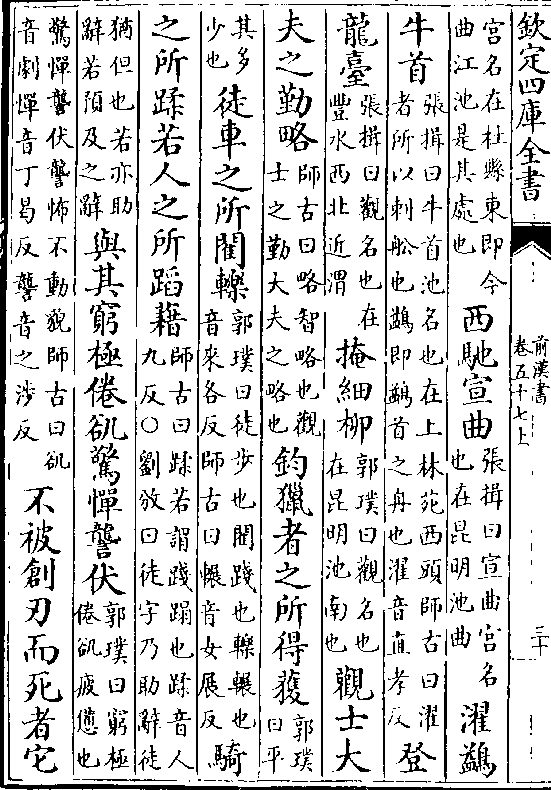 欽定四庫全書
前漢書
卷五十七上
三十
宮名在杜縣東即今曲江池是其處也西馳宣曲張揖曰宣曲宮名也在昆明池曲濯鷁
牛首張揖曰牛首池名也在上林苑西頭師古曰濯者所以刺船也鷁即鷁首之舟也濯音直孝反登
龍臺張揖曰觀名也在豐水西北近渭掩細柳郭璞曰觀名也在昆明池南也觀士大
夫之勤略師古曰略智略也觀士之勤大夫之略也鈞獵者之所得獲郭璞曰平
其多少也徒車之所閵轢郭璞曰徒步也閵踐也轢輾也音來各反師古曰輾音女展反騎
之所蹂若人之所蹈藉師古曰蹂若謂踐蹋也蹂音人九反○劉攽曰徒字乃助辭徒
猶但也若亦助辭若預及之辭與其窮極倦𠨞驚憚讋伏郭璞曰窮極倦𠨞疲憊也
驚憚讋伏讋怖不動貌師古曰𠨞音劇憚音丁曷反讋音之涉反不被創刃而死者它